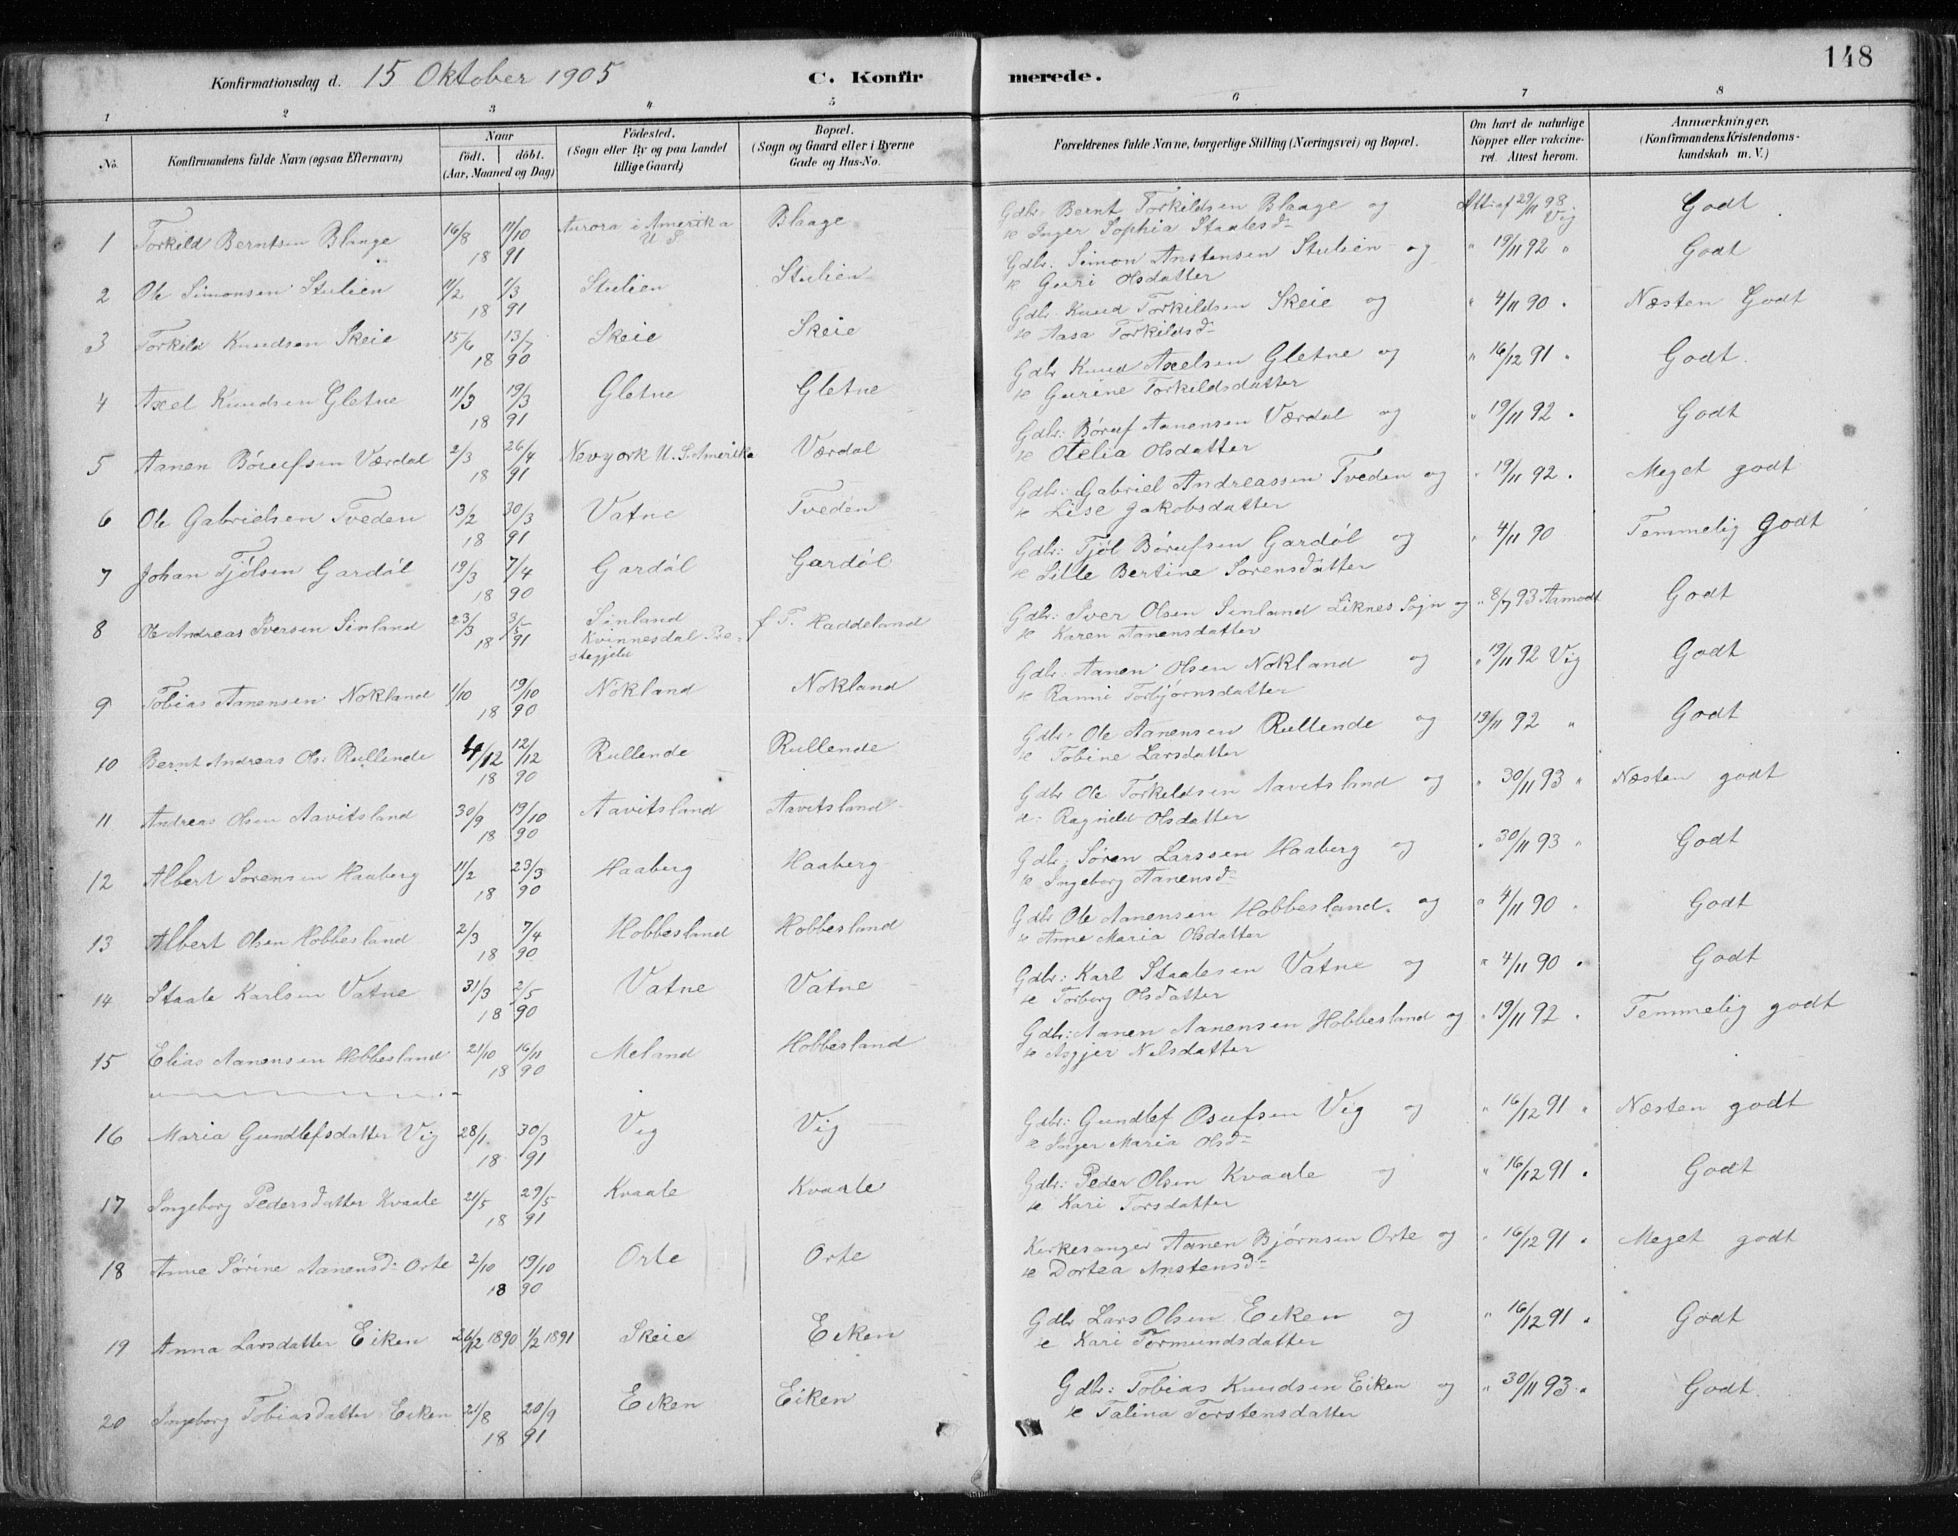 148
Konfirmationsdag d. 15 Oktober 1905 C. Konfirmerede.
1 2 3 4 5 6 7 8
No. Konfirmandens fulde Navn (ogsaa Efternavn) Naar født. døbt. (Aar, Maaned og Dag) Fødested. (Sogn eller By og paa Landet tillige Gaard) Bopæl. (Sogn og Gaard eller i Byerne Gade og Hus-No. Forældrenes fulde Navne, borgerlige Stilling (Næringsvei) og Bopæl. Om havt de naturlige Kopper eller vakcineret. Attest herom. Anmærkninger. (Konfirmandens Kristendomskundskab m. V.)
1 Torkild Berntsen Blaage 16/8 11/10 18 91 Aurora i Amerika U S Blaage Gdbr: Bernt Torkildsen Blaage og Att: af 29/11 98 Vig Godt.
Inger Sophia Staalesd-
2 Ole Simonsen Stulien 11/2 1/3 18 91 Stulien Stulien Gdbr: Simon Anstensen Stulien og " 19/11 92 " Godt
Guri Olsdatter
3 Torkild Knudsen Skeie 15/6 13/7 18 90 Skeie Skeie Gdbr: Knud Torkildsen Skeie og " 4/11 90 " Næsten Godt
Aasa Torkildsd-
4 Axel Knudsen Gletne 11/3 19/3 18 91 Gletne Gletne Gdbr Knud Axelsen Gletne og " 16/12 91 " Godt.
Gurine Torkildsdatter
5 Aanen Børufsen Værdal 2/3 26/4 18 91 Newyork U. S. Amerika Værdal Gdbr: Børuf Aanensen Værdal og " 19/11 92 " Godt
Otelia Olsdatter
6 Ole Gabrielsen Tveden 13/2 30/3 18 91 Vatne Tveden Gdbr: Gabriel Andreassen Tveden og " 19/11 92 " Meget godt
Lise Jakobsdatter
7 Johan Tjølsen Gardøl 19/3 7/4 18 90 Gardøl Gardøl Gdbr: Tjøl Børufsen Gardøl og " 4/11 90 Temmelig Godt
Lille Bertine Sørensdatter
8 Ole Andreas Iversen Sinland 23/3 3/5 18 91 Sinland Kvinnesdal Præstegjeld f. T. Haddeland Gdbr: Iver Olsen Sinland Liknes Sogn og " 8/7 93 Aamodt Godt
Karen Aanensdatter
9 Tobias Aanensen Nokland 1/10 19/10 18 90 Nokland Nokland Gdbr: Aanen Olsen Nokland og " 19/11 92 Vig Godt
Ranni Torbjørnsdatter
10 Bernt Andreas Ols: Rullende 4/12 12/12 18 90 Rullende Rullende Gdbr: Ole Aanensen Rullende og 19/11 92 " Godt
Tobine Larsdatter
11 Andreas Olsen Aavitsland 30/9 19/10 18 90 Aavitsland Aavitsland Gdbr Ole Torkildsen Aavitsland og " 30/11 93 " Næsten godt
Ragnild Olsdatter
12 Albert Sørensen Haaberg 11/2 23/3 18 90 Haaberg Haaberg Gdbr: Søren Larssen Haaberg og " 30/11 93 " Godt
Ingeborg Aanensd-
13 Albert Olsen Hobbesland 2/3 7/4 18 90 Hobbesland Hobbesland Gdbr Ole Aanensen Hobbesland. og " 4/11 90 " Godt
Anne Maria Olsdatter
14 Staale Karlsen Vatne 31/3 2/5 18 90 Vatne Vatne Gdbr: Karl Staalesen Vatne og " 4/11 90 " Godt
Torborg Olsdatter
15 Elias Aanensen Hobbesland 21/10 16/11 18 90 Meland Hobbesland Gdbr: Aanen Aanensen Hobbesland og " 19/11 92 " Temmelig godt
Asgjer Nilsdatter
16 Maria Gundlefsdatter Vig 28/1 30/3 18 91 Vig Vig Gdbr: Gundlef Osufsen Vig og " 16/12 91 " Næsten godt
Inger Maria Olsd-
17 Ingeborg Pedersdatter Kvaale 21/5 29/5 18 91 Kvaale Kvaale Gdbr: Peder Olsen Kvaale og " 16/12 91 " Godt
Kari Torsdatter
18 Anne Sørine Aanensd- Orte 2/10 19/10 18 90 Orte Orte Kirkesanger Aanen Bjørnsen Orte og " 16/12 91 " Meget godt
Dortea Anstensd-
19 Anna Larsdatter Eiken 26/12 1890 1/2 1891 Skeie Eiken Gdbr Lars Olsen Eiken og " 16/12 91 " Godt
Kari Tormundsdatter
20 Ingeborg Tobiasdatter Eiken 21/8 20/9 18 91 Eiken Eiken Gdbr: Tobias Knudsen Eiken og " 30/11 93 " Godt.
Talina Torstensdatter